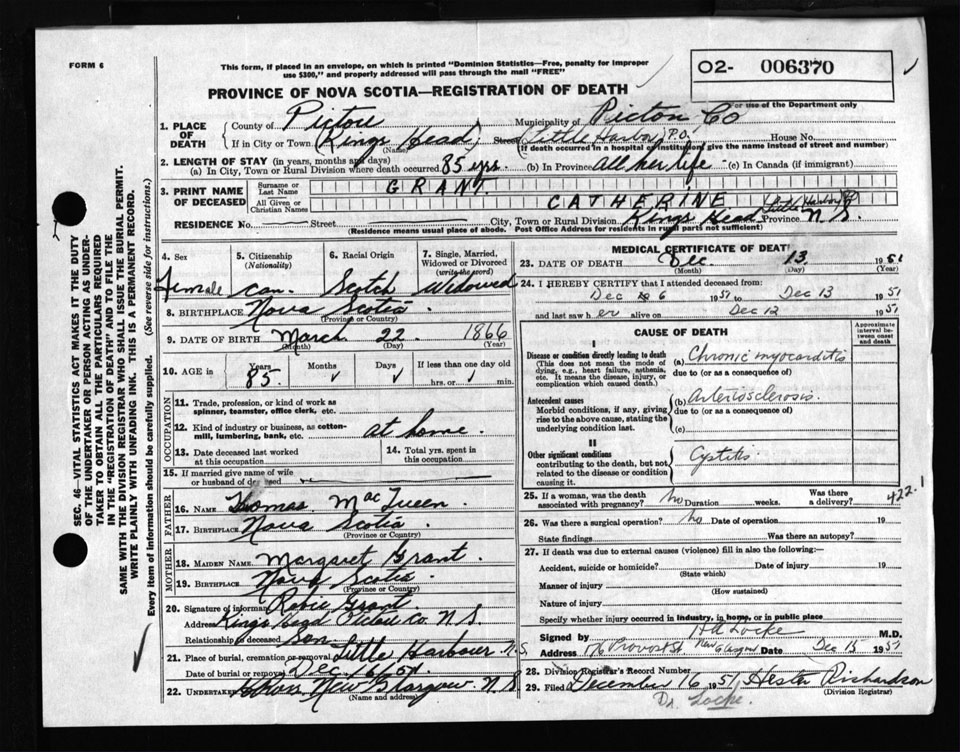 FORM 6
This form, if placed in an envelope, on which is printed "Dominion Statistics—Free, penalty for improper
use $300," and properly addressed will pass through the mail "FREE"
O2- 006370
For use of the Department only
PROVINCE OF NOVA SCOTIA—REGISTRATION OF DEATH
1. PLACE OF DEATH { County of Pictou Municipality of Pictou Co
If in City or Town (Kings Head) (Name) Street (Little Harbor P.O.) House No.
(If death occurred in a hospital or institution, give the name instead of street and number)
2. LENGTH OF STAY (in years, months and days)
(a) In City, Town or Rural Division where death occurred 85 yrs. (b) In Province all her life (c) In Canada (if immigrant)
3. PRINT NAME OF DECEASED { Surname or Last Name GRANT
All Given or Christian Names CATHERINE
RESIDENCE No. Street City, Town or Rural Division Kings Head (Little Harbor PO) Province N.S.
(Residence means usual place of abode. Post Office Address for residents in rural parts not sufficient)
4. Sex Female
5. Citizenship (Nationality) Can.
6. Racial Origin Scotch
7. Single, Married, Widowed or Divorced (write the word) Widowed
8. BIRTHPLACE Nova Scotia
(Province or Country)
9. DATE OF BIRTH March 22 1866
(Month) (Day) (Year)
10. AGE in { Years 85. Months √ Days √ If less than one day old hrs. or min.
OCCUPATION
11. Trade, profession, or kind of work as spinner, teamster, office clerk, etc.
12. Kind of industry or business, as cotton-mill, lumbering, bank, etc. at home.
13. Date deceased last worked at this occupation
14. Total yrs. spent in this occupation
15. If married give name of wife or husband of deceased
FATHER
16. NAME Thomas MacQueen
17. BIRTHPLACE Nova Scotia
(Province or Country)
MOTHER
18. MAIDEN NAME Margaret Grant.
19. BIRTHPLACE Nova Scotia.
(Province or Country)
20. Signature of informant Grant.
Address Kings Head Pictou Co. N.S.
Relationship to deceased son.
21. Place of burial, cremation or removal Little Harbour N.S.
Date of burial or removal Dec. 16/51
22. Undertaker New Glasgow. N.S
(Name and address)
MEDICAL CERTIFICATE OF DEATH
23. DATE OF DEATH Dec 13 1951
(Month) (Day) (Year)
24. I HEREBY CERTIFY that I attended deceased from:
Dec 6 1951 to Dec 13 1951
and last saw her alive on Dec 12 1951
CAUSE OF DEATH
Approximate interval between cause and death
I
Disease or condition directly leading to death
(This does not mean the mode of dying, e.g., heart failure, asthenia, etc. It means the disease, injury, or complication which caused death.)
(a) Chronic myocarditis
due to (or as a consequence of)
Antecedent causes
Morbid conditions, if any, giving rise to the above cause, stating the underlying condition last.
(b) Arteriosclerosis.
due to (or as a consequence of)
(c)
II
Other significant conditions
contributing to the death, but not related to the disease or condition causing it.
Cystitis
25. If a woman, was the death associated with pregnancy? no Duration weeks. Was there a delivery?
422.1
26. Was there a surgical operation? no Date of operation 19
State findings Was there an autopsy?
27. If death was due to external causes (violence) fill in also the following:—
Accident, suicide or homicide? Date of injury 19
(State which)
Manner of injury
(How sustained)
Nature of injury
Specify whether injury occurred in Industry, in home, or in public place
Signed by H A Locke M.D.
Address 176 Provost St New Glasgow Date Dec 15 1951
28. Division Registrar's Record Number
29. Filed December 16 1951 Hester Richardson
(Division Registrar)
Dr. Locke.
SEC. 46—VITAL STATISTICS ACT MAKES IT THE DUTY
OF THE UNDERTAKER OR PERSON ACTING AS UNDER-
TAKER TO OBTAIN ALL THE PARTICULARS REQUIRED
IN THE "REGISTRATION OF DEATH" AND TO FILE THE
SAME WITH THE DIVISION REGISTRAR WHO SHALL ISSUE THE BURIAL PERMIT.
WRITE PLAINLY WITH UNFADING INK. THIS IS A PERMANENT RECORD.
Every item of information should be carefully supplied. (See reverse side for instructions.)